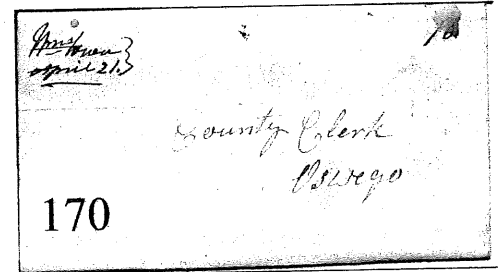 Wmstown
april 21
10
County Clerk
Oswego
170